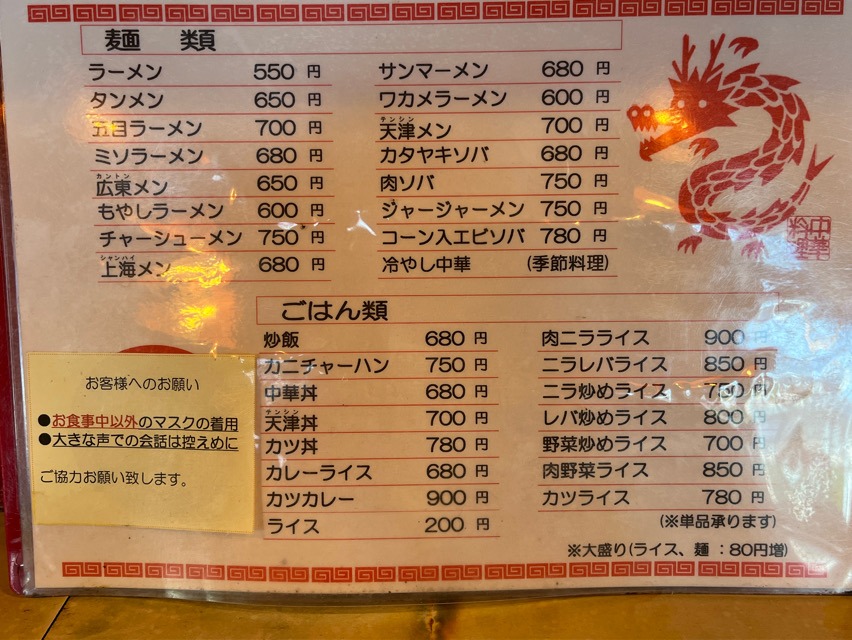 麺 類
ラーメン 550 円
タンメン 650 円
五目ラーメン 700 円
ミソラーメン 680 円
カントン
広東メン 650 円
もやしラーメン 600 円
チャーシューメン 750 円
シャンハイ
上海メン 680 円
サンマーメン 680 円
ワカメラーメン 600 円
テンシン
天津メン 700 円
カタヤキソバ 680 円
肉ソバ 750 円
ジャージャーメン 750 円
コーン入エビソバ 780 円
冷やし中華 (季節料理)
中華料理
ごはん類
炒飯 680 円
カニチャーハン 750 円
中華丼 680 円
テンシン
天津丼 700 円
カツ丼 780 円
カレーライス 680 円
カツカレー 900 円
ライス 200 円
肉ニラライス 900 円
ニラレバライス 850 円
ニラ炒めライス 750 円
レバ炒めライス 800 円
野菜炒めライス 700 円
肉野菜ライス 850 円
カツライス 780 円
(※単品承ります)
※大盛り(ライス、麺 : 80円増)
お客様へのお願い
●お食事中以外のマスクの着用
●大きな声での会話は控えめに
ご協力お願い致します。